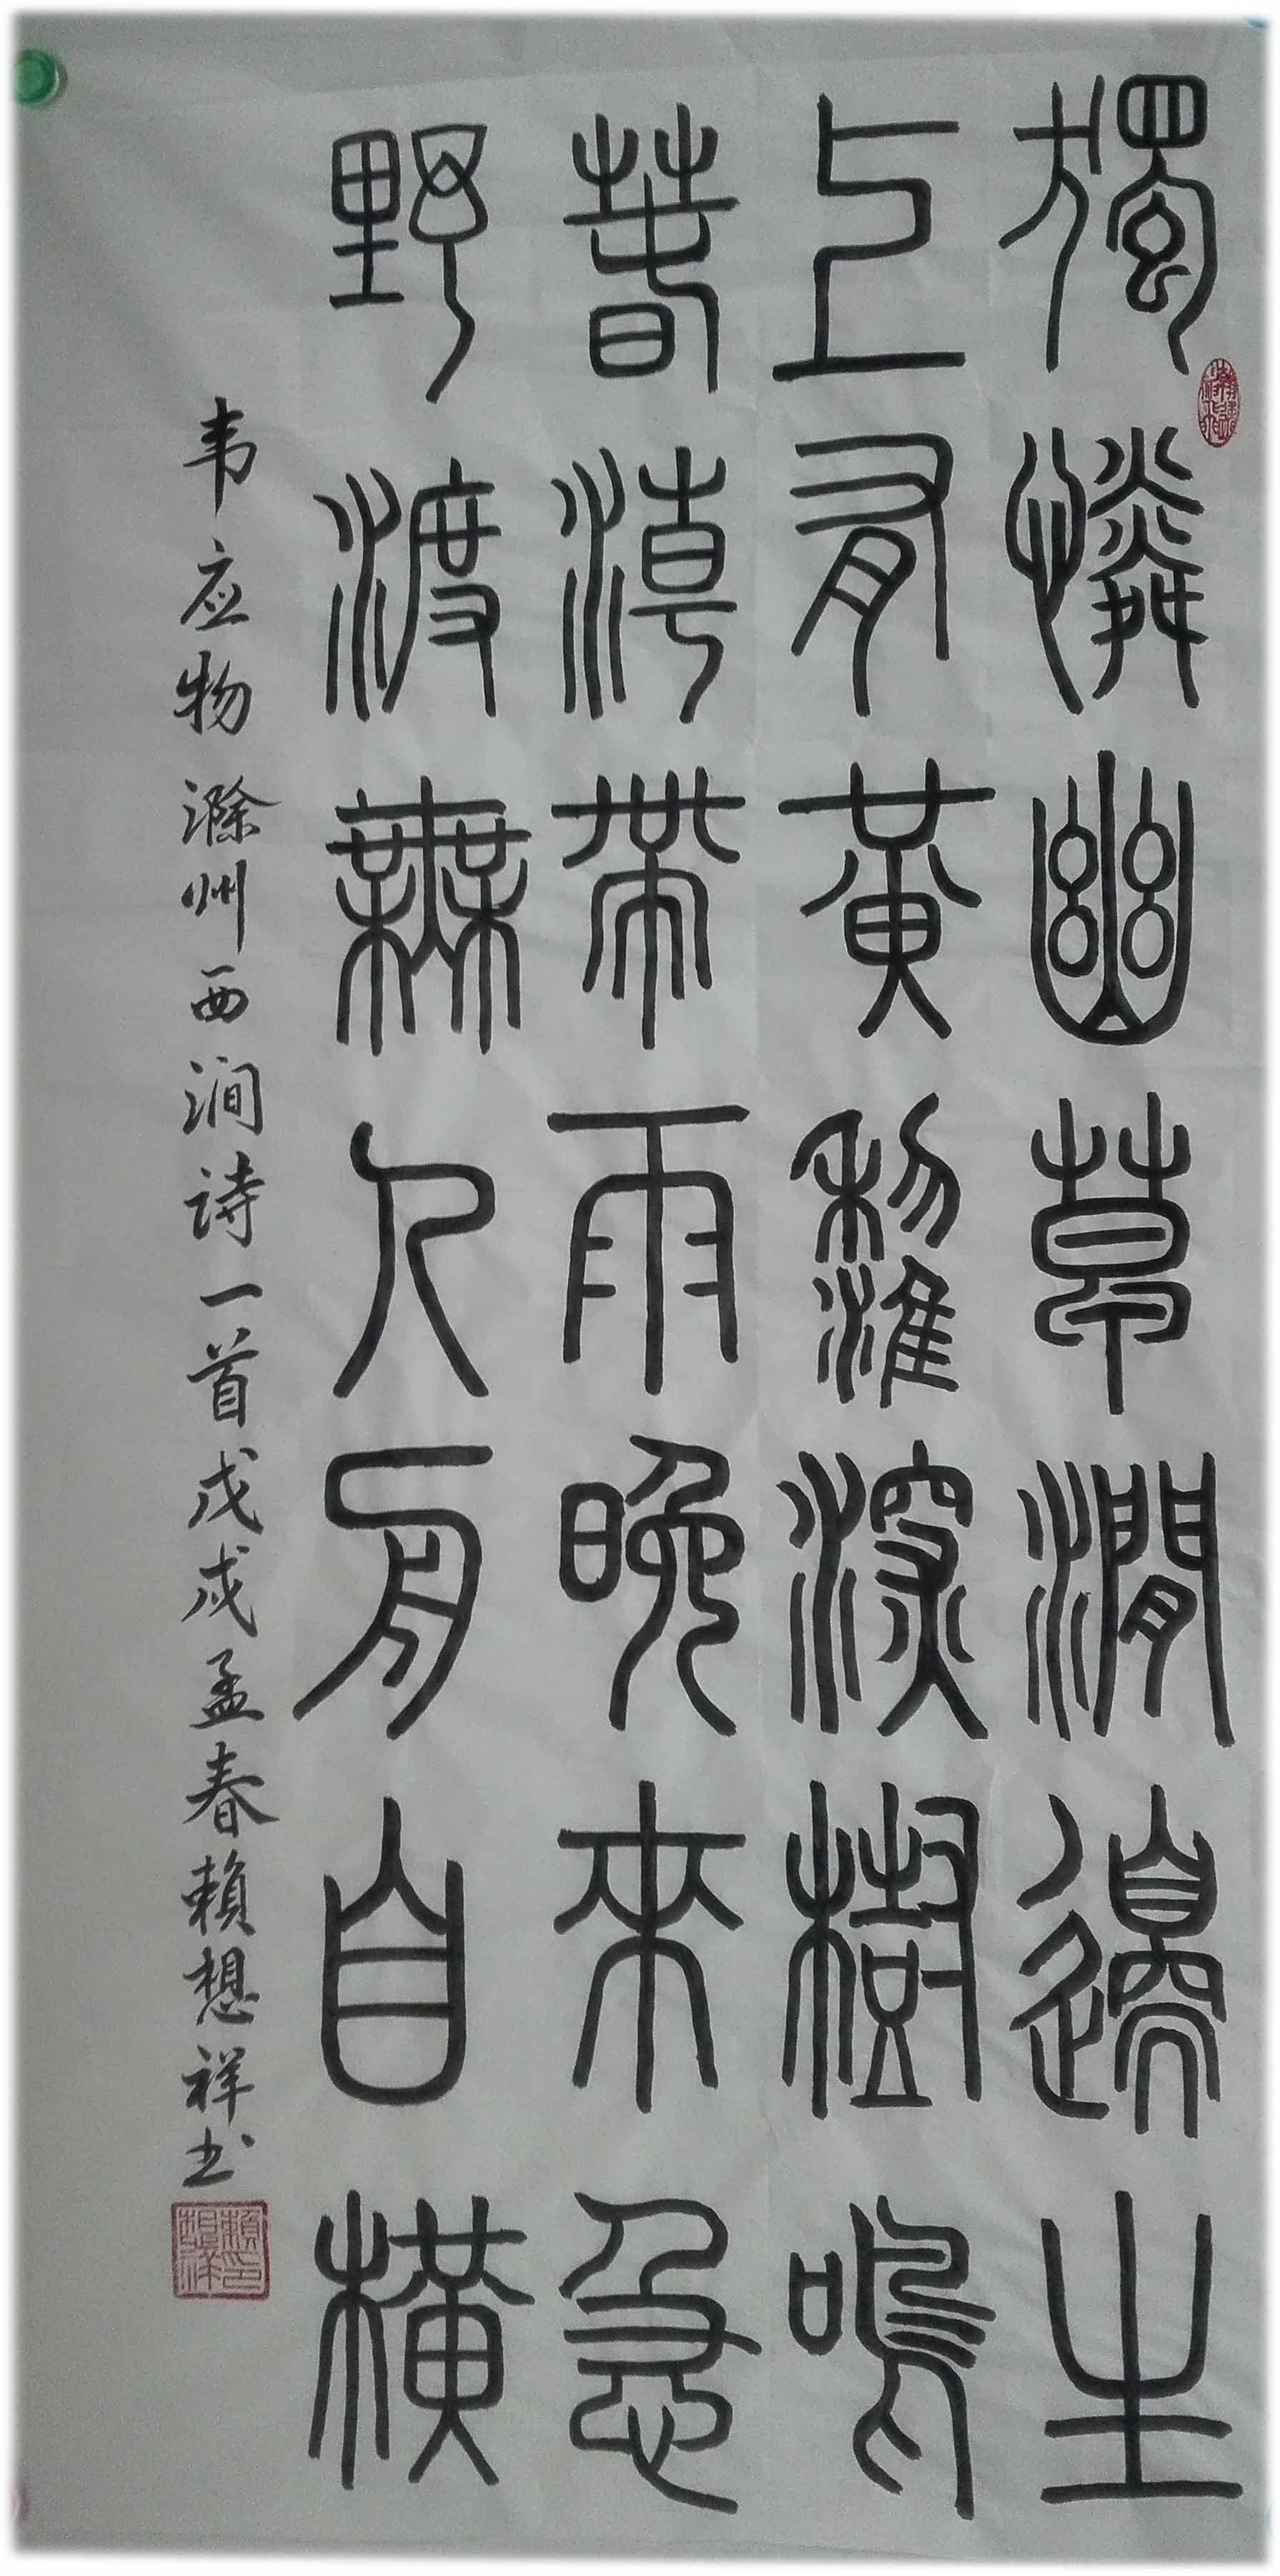 獨憐幽草澗邊生
上有黃鸝深樹鳴
春潮帶雨晚來急
野渡無人舟自橫
韦应物滁州西涧诗一首戊戌孟春賴想祥书
賴印想祥